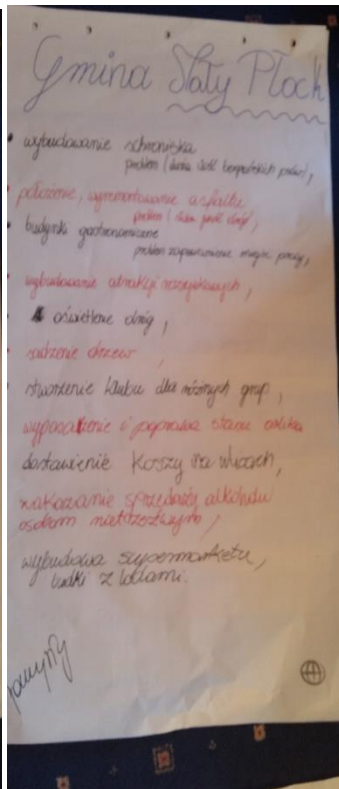 Gmina Mały Płock
• wybudowanie schroniska
problem (duża ilość bezpańskich psów),
• położenie, wyremontowanie asfaltu
problem (stan dróg),
• budynki gastronomiczne
problem zapewnienie miejsc pracy,
• wybudowanie atrakcji rozrywkowych,
• oświetlenie dróg,
• sadzenie drzew,
• stworzenie klubu dla różnych grup,
wyposażenie i poprawa stanu orlika
dostawienie koszy na wioskach,
zakazanie sprzedaży alkoholu
osobom nietrzeźwym,
wybudowa supermarketu,
budki z lodami.
pomysły